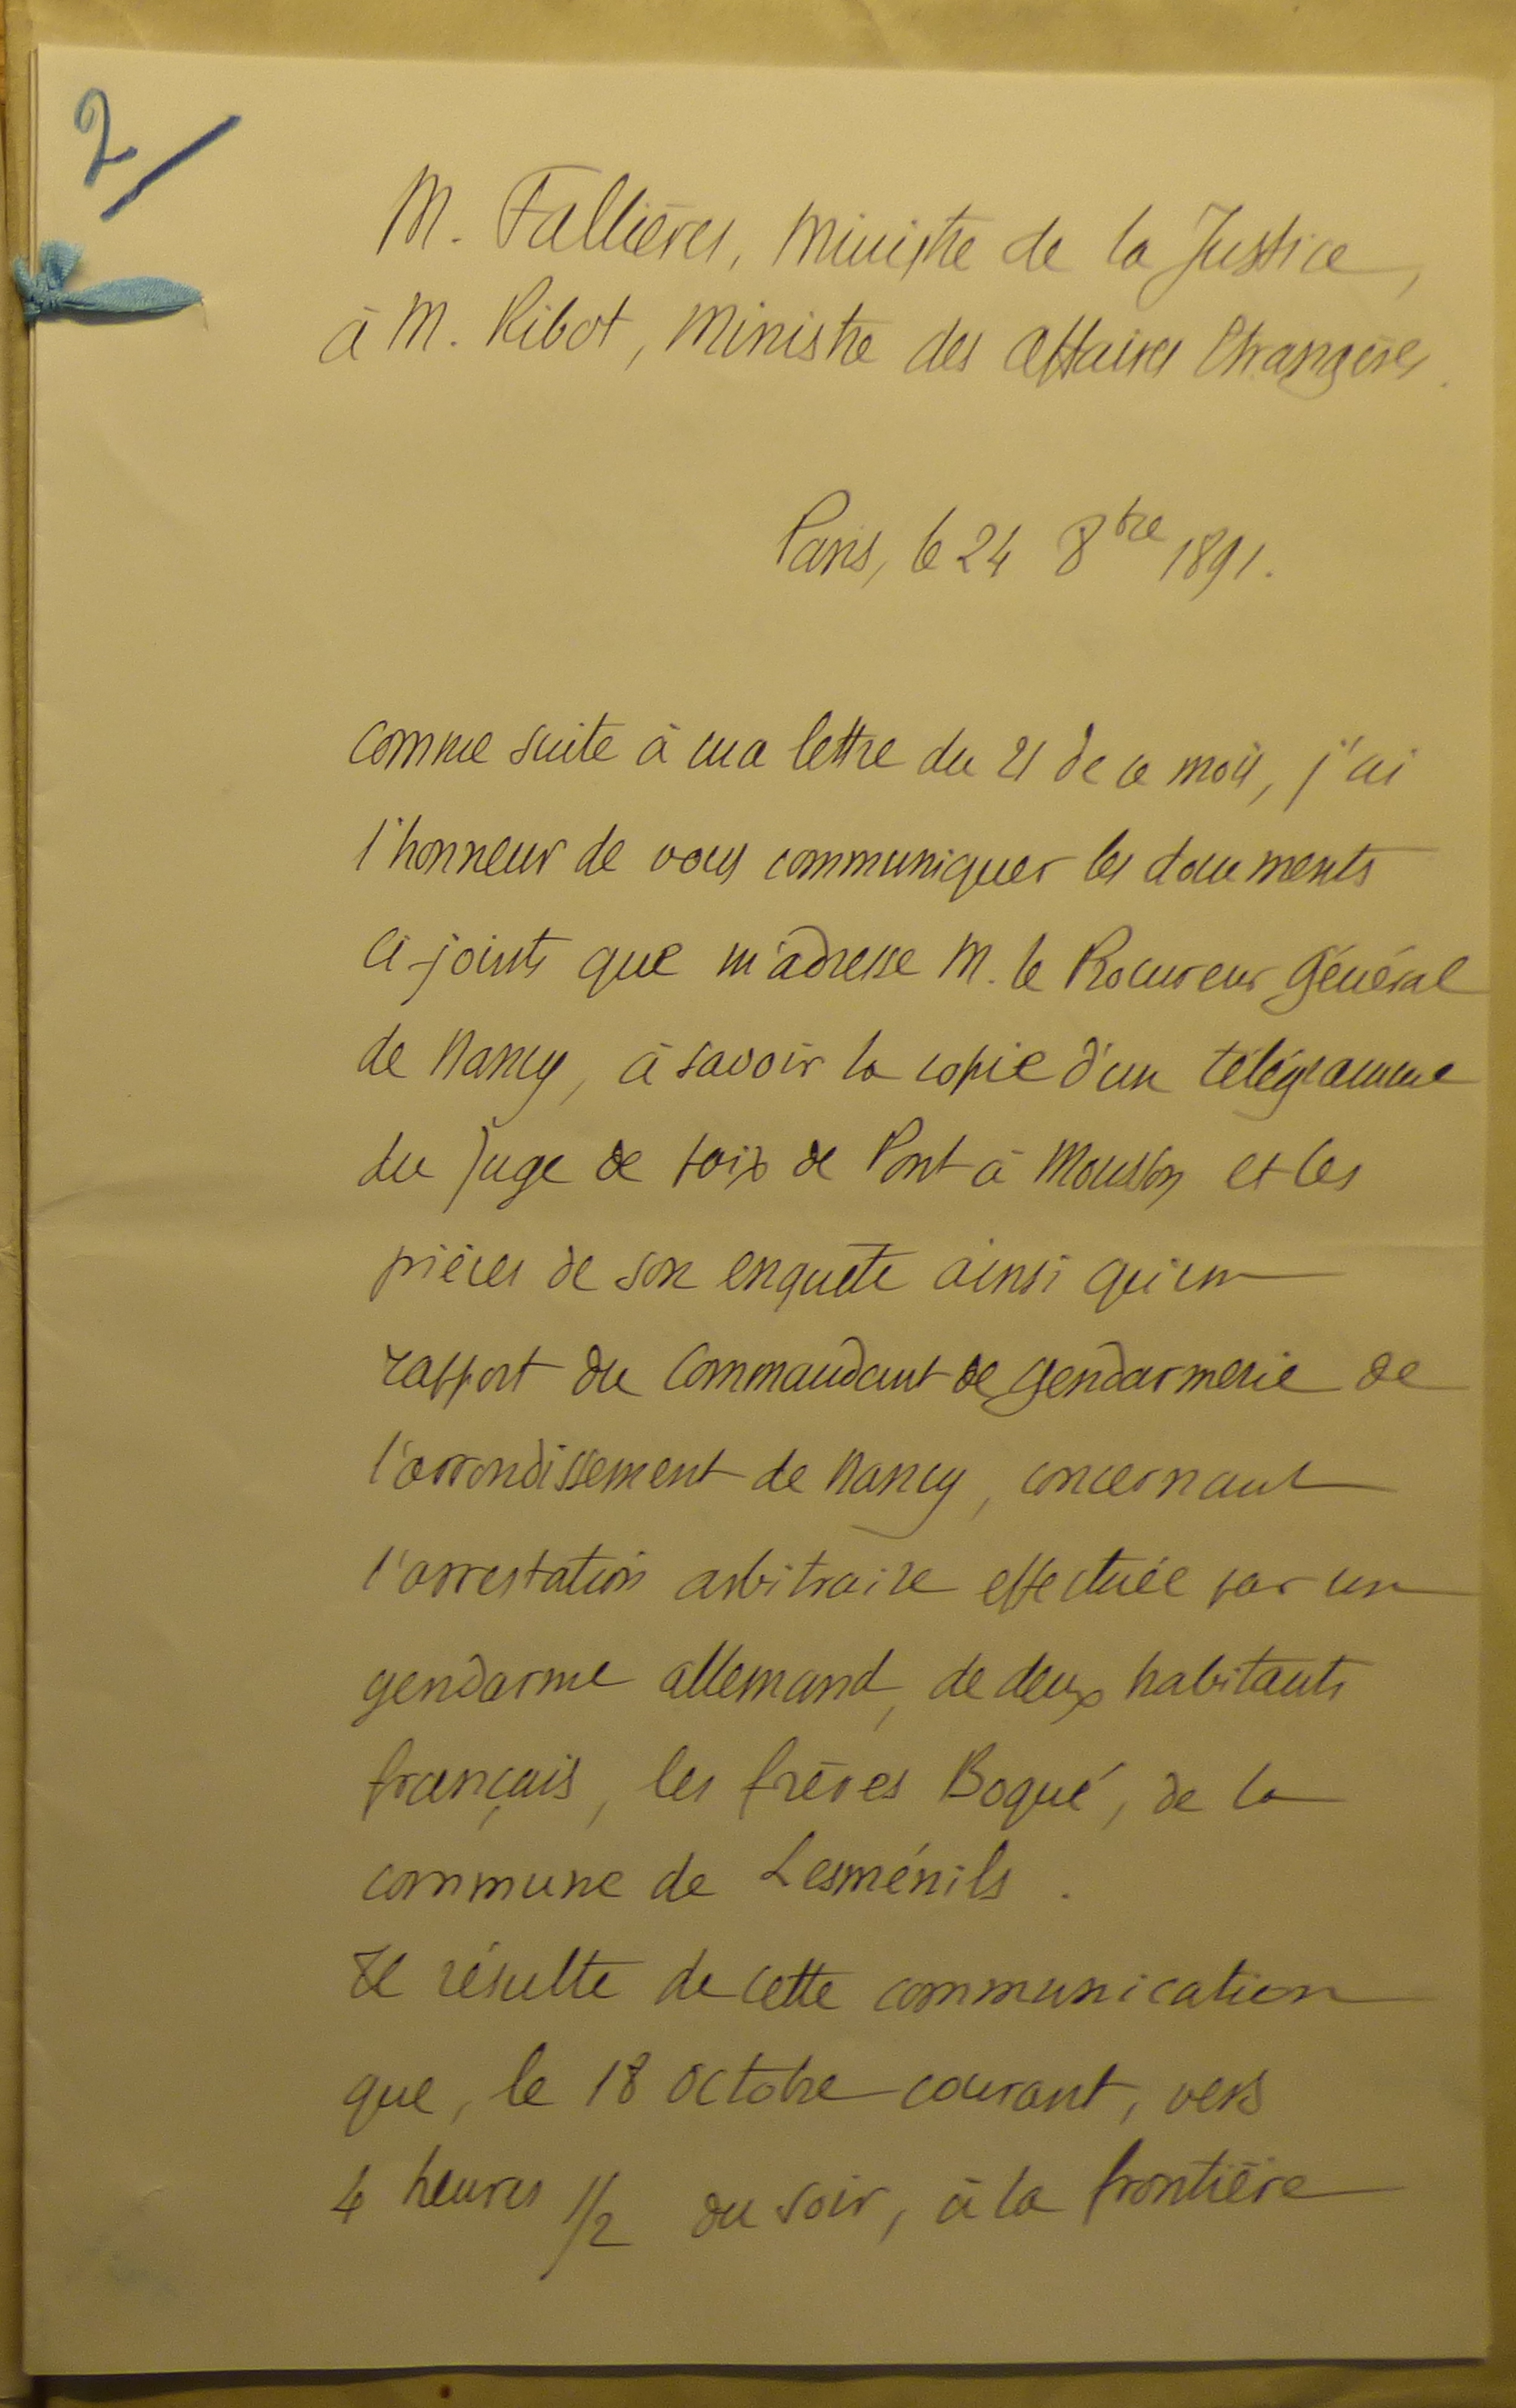 2/
M. Fallières, Ministre de la Justice,
à M. Ribot, Ministre des Affaires Etrangères.
Paris, le 24 8bre 1891.
Comme suite à ma lettre du 21 de ce mois, j'ai
l'honneur de vous communiquer les documents
ci-joints que m'adresse M. le Procureur Général
de Nancy, à savoir la copie d'un télégramme
du Juge de paix de Pont à Mousson et les
pièces de son enquête ainsi qu'un
rapport du Commandant de gendarmerie de
l'arrondissement de Nancy, concernant
l'arrestation arbitraire effectuée par un
gendarme allemand, de deux habitants
français, les frères Boqué, de la
commune de Lesménils.
Il résulte de cette communication
que, le 18 octobre courant, vers
4 heures 1/2 du soir, à la frontière